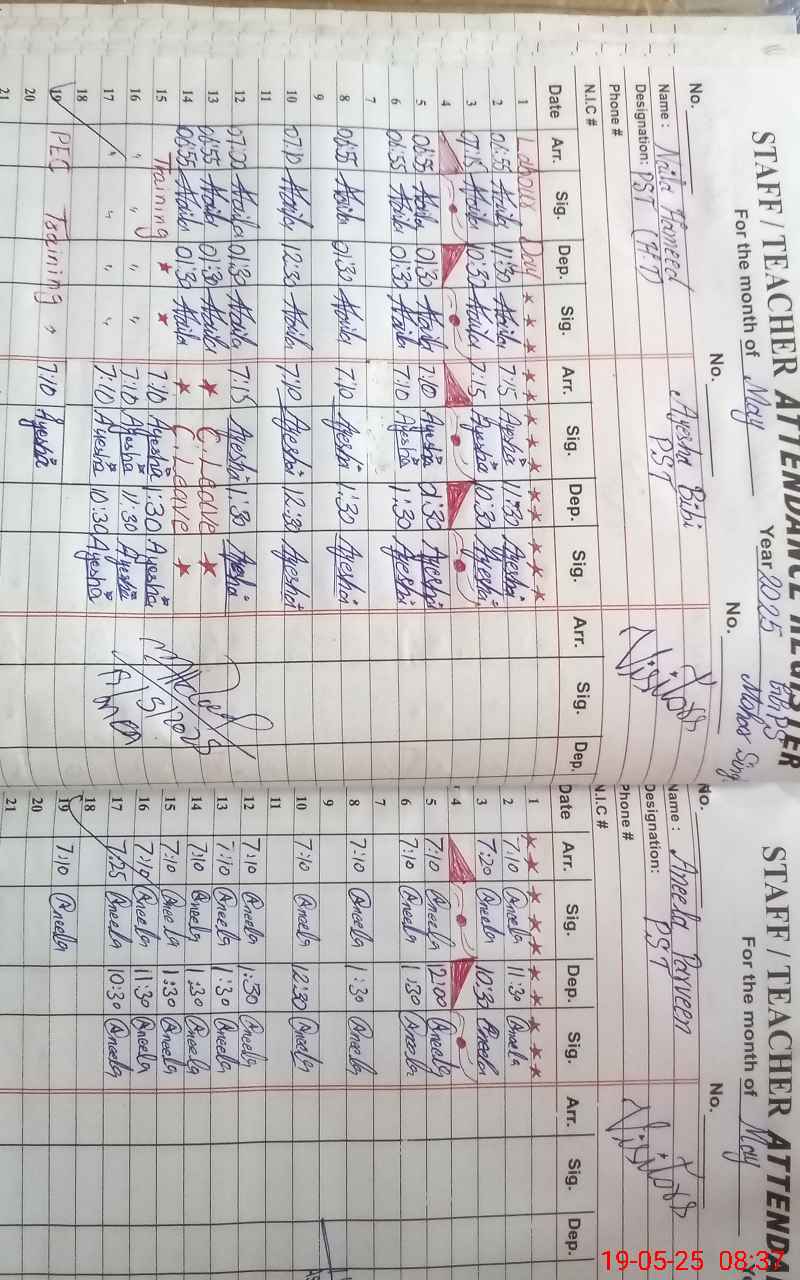 STAFF / TEACHER ATTENDANCE REGISTER
For the month of May Year 2025
No. No. No.
Name : Naila Hameed Ayesha Bibi
Designation: PST (H.T) PST Visitors
Phone #
N.I.C #
Date Arr. Sig. Dep. Sig. Arr. Sig. Dep. Sig. Arr. Sig. Dep.
1 Labour Day
2 06:55 11:30 7:15 Ayesha 11:30 Ayesha
3 07:15 10:30 7:15 Ayesha 10:30 Ayesha
4
5 06:55 01:30 7:10 Ayesha 01:30 Ayesha
6 06:55 01:30 7:10 Ayesha 1:30 Ayesha
7
8 06:55 01:30 7:10 Ayesha 1:30 Ayesha
9
10 07:10 12:30 7:10 Ayesha 12:30 Ayesha
11
12 07:00 01:30 7:15 Ayesha 1:30 Ayesha
13 06:55 01:30 C. Leave
14 06:55 01:30 C. Leave
15 Training 7:10 Ayesha 1:30 Ayesha
16 " " " " 7:10 Ayesha 11:30 Ayesha
17 " " " " 7:10 Ayesha 10:30 Ayesha
18
19 PEC Training " 7:10 Ayesha
20
21
STAFF / TEACHER ATTENDA
For the month of May
No. No.
Name : Aneela Parveen
Designation: PST Visitors
Phone #
N.I.C #
Date Arr. Sig. Dep. Sig. Arr. Sig. Dep.
1
2 7:10 Aneela 11:30 Aneela
3 7:20 Aneela 10:30 Aneela
4
5 7:10 Aneela 12:00 Aneela
6 7:10 Aneela 1:30 Aneela
7
8 7:10 Aneela 1:30 Aneela
9
10 7:10 Aneela 12:30 Aneela
11
12 7:10 Aneela 1:30 Aneela
13 7:10 Aneela 1:30 Aneela
14 7:10 Aneela 1:30 Aneela
15 7:10 Aneela 1:30 Aneela
16 7:10 Aneela 11:30 Aneela
17 7:25 Aneela 10:30 Aneela
18
19 7:10 Aneela
20
21
19-05-25 08:37